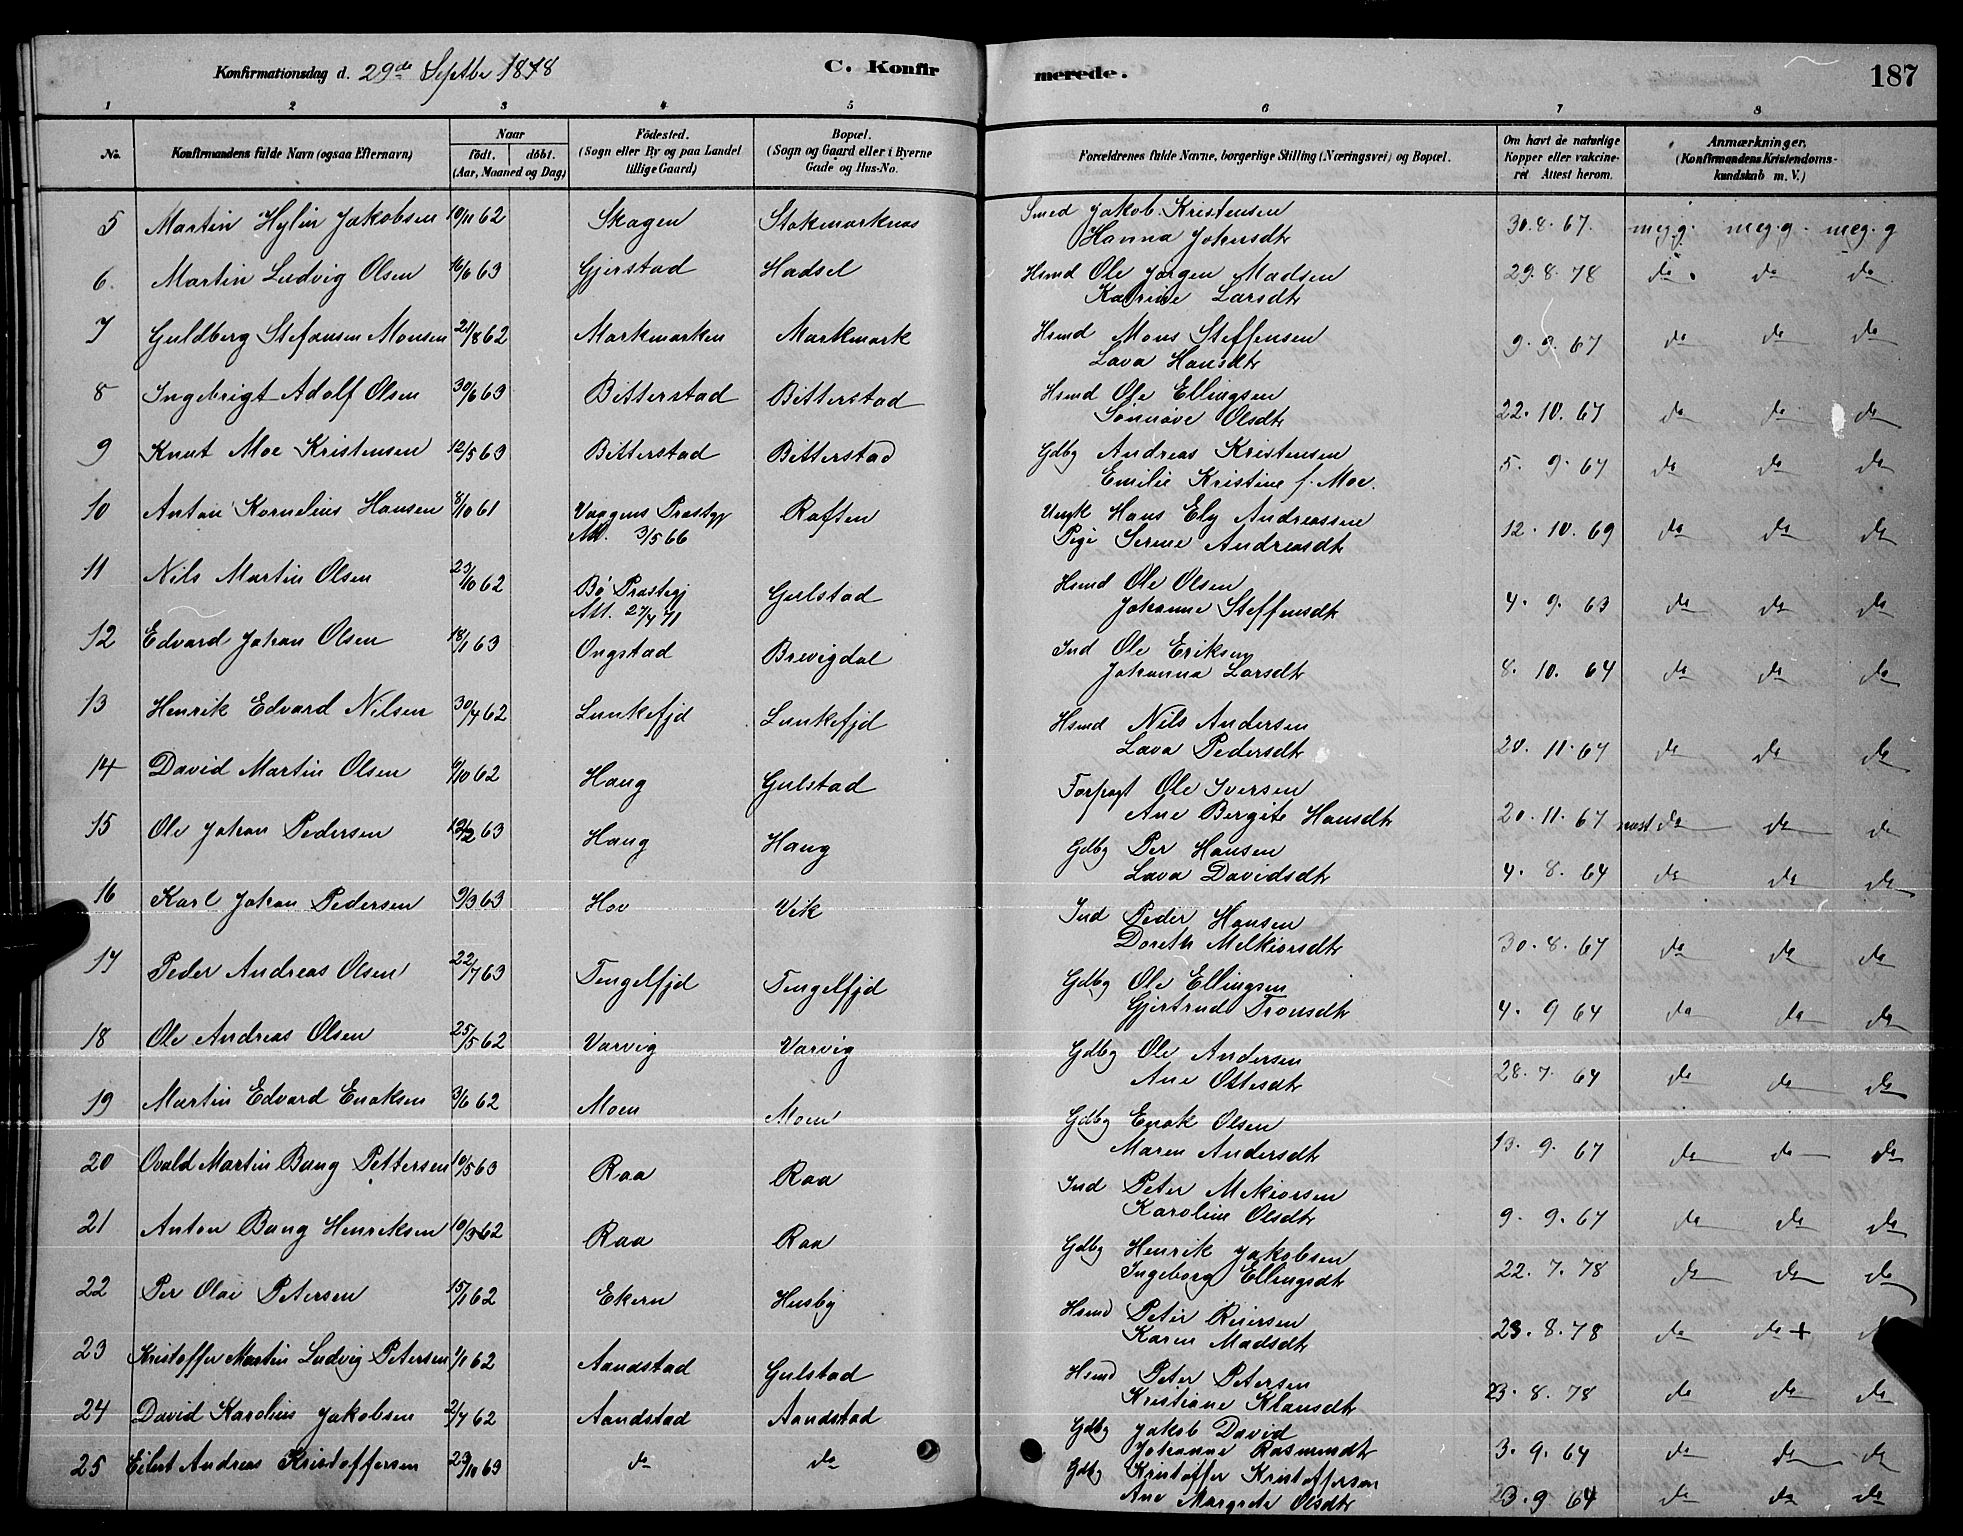 Konfirmationsdag d. 29de Septbr 1878
C. Konfirmerede.
187
1 2 3 4 5 6 7 8
No.
Konfirmandens fulde Navn (ogsaa Efternavn)
Naar
födt. döbt.
(Aar, Maaned og Dag)
Födested.
(Sogn eller By og paa Landet
tillige Gaard)
Bopæl.
(Sogn og Gaard eller i Byerne
Gade og Hus-No.
Forældrenes fulde Navne, borgerlige Stilling (Næringsvei) og Bopæl.
Om havt de naturlige
Kopper eller vakcine-
ret Attest herom.
Anmærkninger.
(Konfirmandens Kristendoms-
kundskab m. V.)
5 Martin Hylin Jakobsen 10/11 62 Skagen Stokmarknæs Smed Jakob Kristensen 30.8.67. meg.g. meg.g. meg.g
Hanna Johnsdtr
6. Martin Ludvig Olsen 16/6 63 Gjerstad Hadsel Hsmd Ole Jørgen Madsen 29.8.78 do do do
Katrine Larsdtr
7 Guldberg Stefansen Monsen 21/8 62 Markmarken Markmark Hsmd Mons Steffensen 9.9.67 do do do
Lava Hansdtr
8 Ingebrigt Adolf Olsen 30/6 63 Bitterstad Bitterstad Hsmd Ole Ellingsen 22.10.67 do do do
Sønnøve Olsdtr
9 Knut Moe Kristensen 12/5 63 Bitterstad Bitterstad Gdbg Andreas Kristensen 5.9.67 do do do
Emilie Kristine f. Moe.
10 Anton Kornelius Hansen 8/10 61 Vaagens Præstgj Raften Ungk Hans Ely Andreassen 12.10.69 do do do
Att. 3/5 66 Pige Serine Andreasdtr
11 Nils Martin Olsen 23/10 62 Bø Præstegj Gulstad Hsmd Ole Olsen 4.9.63 do do do
Att. 27/4 71 Johanne Steffensdtr
12 Edvard Johan Olsen 18/1 63 Ongstad Brevigdal Ind Ole Eriksen 8.10.64 do do do
Johanna Larsdtr
13 Henrik Edvard Nilsen 30/7 62 Lunkefjd Lunkefjd Hsmd Nils Andersen 20.11.67 do do do
Lava Pedersdtr
14 David Martin Olsen 6/10 62 Haug Gulstad Forpagt Ole Iversen 20.11.67 næst do do do
Ane Bergite Hansdtr
15 Ole Johan Pedersen 12/2 63 Haug Haug Gdbg Per Hansen 4.8.64 do do do
Lava Davidsdtr
16 Karl Johan Pedersen 9/3 63 Hov Vik Ind Peder Hansen 30.8.67 do do do
Doreth Melkiorsdtr
17 Peder Andreas Olsen 22/7 63 Tengelfjd Tengelfjd Gdbg Ole Ellingsen 4.9 64 do do do
Gjertrud Tronsdtr
18 Ole Andreas Olsen 25/5 62 Varvig Varvig Gdbg Ole Andersen 28.7.64 do do do
Ane Ottesdtr
19 Martin Edvard Enoksen 3/6 62 Moen Moen Gdbg Enok Olsen 13.9.67 do do do
Maren Andersdtr
20 Ovald Martin Bang Pettersen 10/5 63 Raa Raa Ind Peter Mekiorsen 9.9.67 do do do
Karoline Olsdtr
21 Anton Bang Henriksen 10/3 62 Raa Raa Gdbg Henrik Jakobsen 22.7.78 do do do
Ingeborg Ellingsdtr
22 Per Olai Petersen 15/1 62 Ekern Husby Hsmd Peter Reiersen 23.8.78 do do +
Karen Madsdtr
23 Kristoffer Martin Ludvig Petersen 1/11 62 Aandstad Gulstad Hsmd Peter Petersen 23.8.78 do do do
Kristiane Klausdtr
24 David Karolius Jakobsen 2/7 62 Aandstad Aandstad Gdbg Jakob David 3.9.64 do do do
Johanne Rasmusdtr
25 Eilert Andreas Kristoffersen 29/10 63 do do Gdbg Kristoffer Kristoffersen 23.9 64 do do do
Ane Margrete Olsdtr